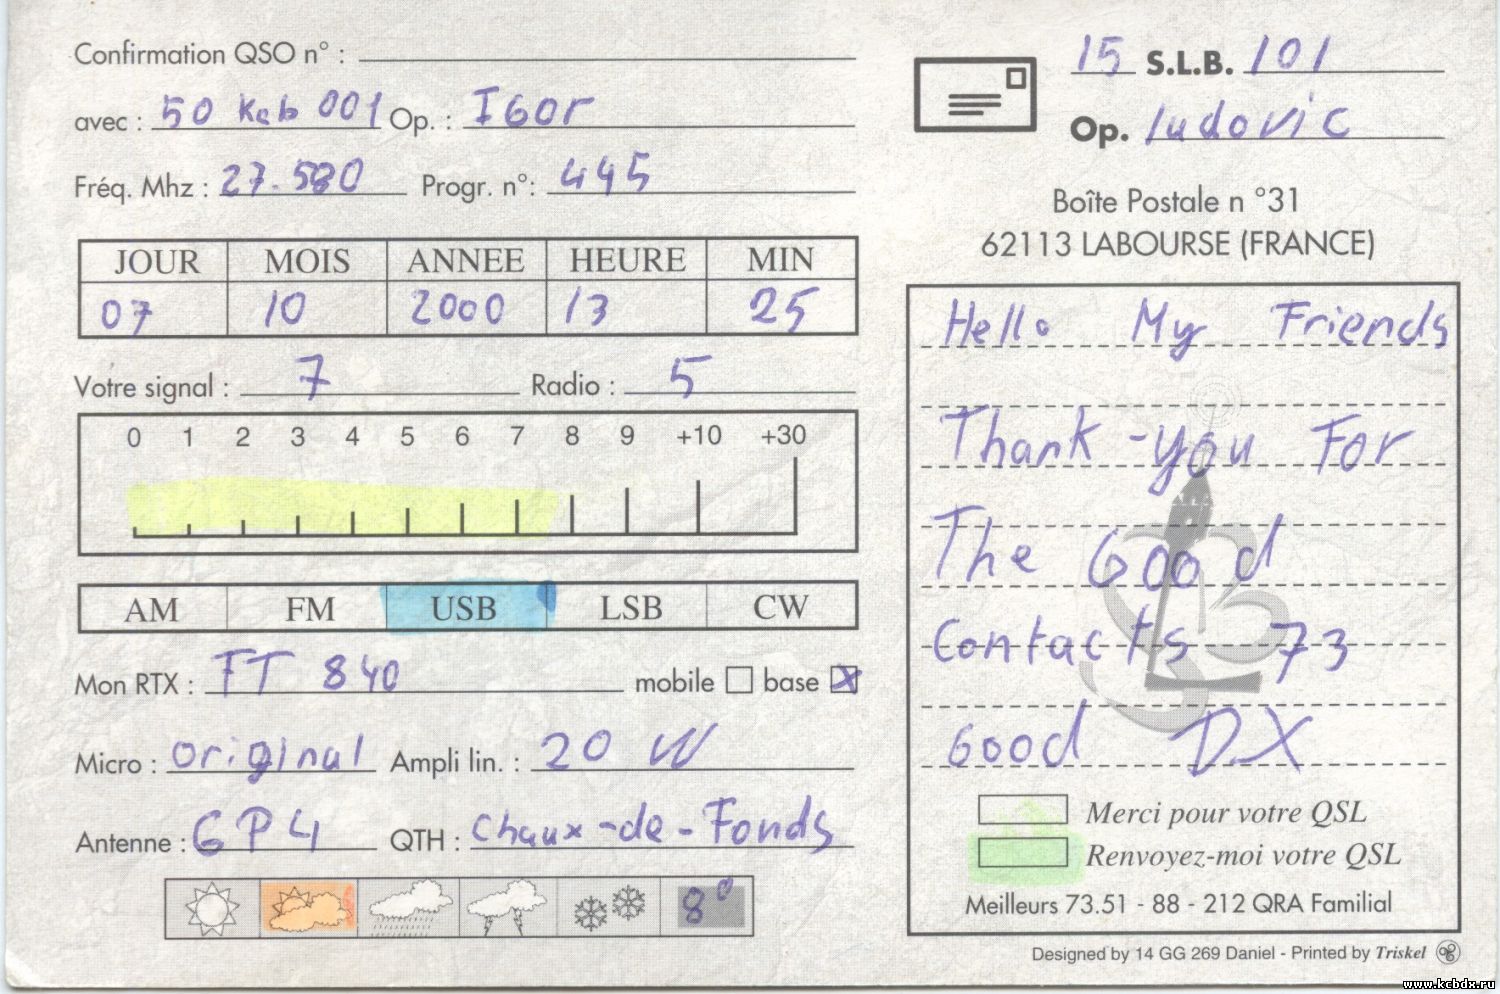 Confirmation QSO n° :
avec : 50 Kcb 001 Op. : IGor
Fréq. Mhz : 27.580 Progr. n°: 445
JOUR MOIS ANNEE HEURE MIN
07 10 2000 13 25
Votre signal : 7 Radio : 5
0 1 2 3 4 5 6 7 8 9 +10 +30
AM FM USB LSB CW
Mon RTX : FT 840 mobile base X
Micro : original Ampli lin. : 20 W
Antenne : GP4 QTH : Chaux-de-Fonds
8°
15 S.L.B. 101
Op. ludovic
Boîte Postale n °31
62113 LABOURSE (FRANCE)
Hello My Friends
Thank-you For
The Good
Contacts 73
Good DX
Merci pour votre QSL
Renvoyez-moi votre QSL
Meilleurs 73.51 - 88 - 212 QRA Familial
Designed by 14 GG 269 Daniel - Printed by Triskel
www.kcbdx.ru